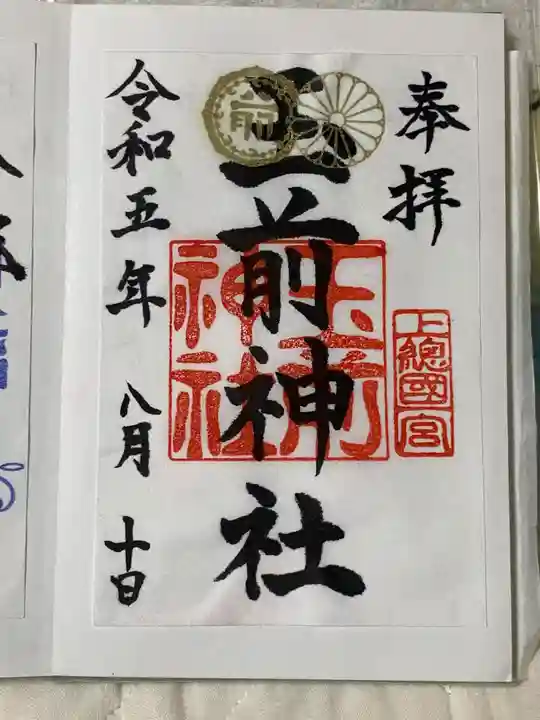 奉拝
上總國一宮
玉前神社
玉前
神社
前
令和五年 八月 十日